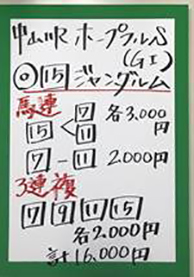 中山11R ホープフルS
(GI)
◎⑮ ジャングルム
馬連
15 < 7 11 各3,000円
7 - 11 2,000円
3連複
7 9 11 15
各2,000円
計16,000円